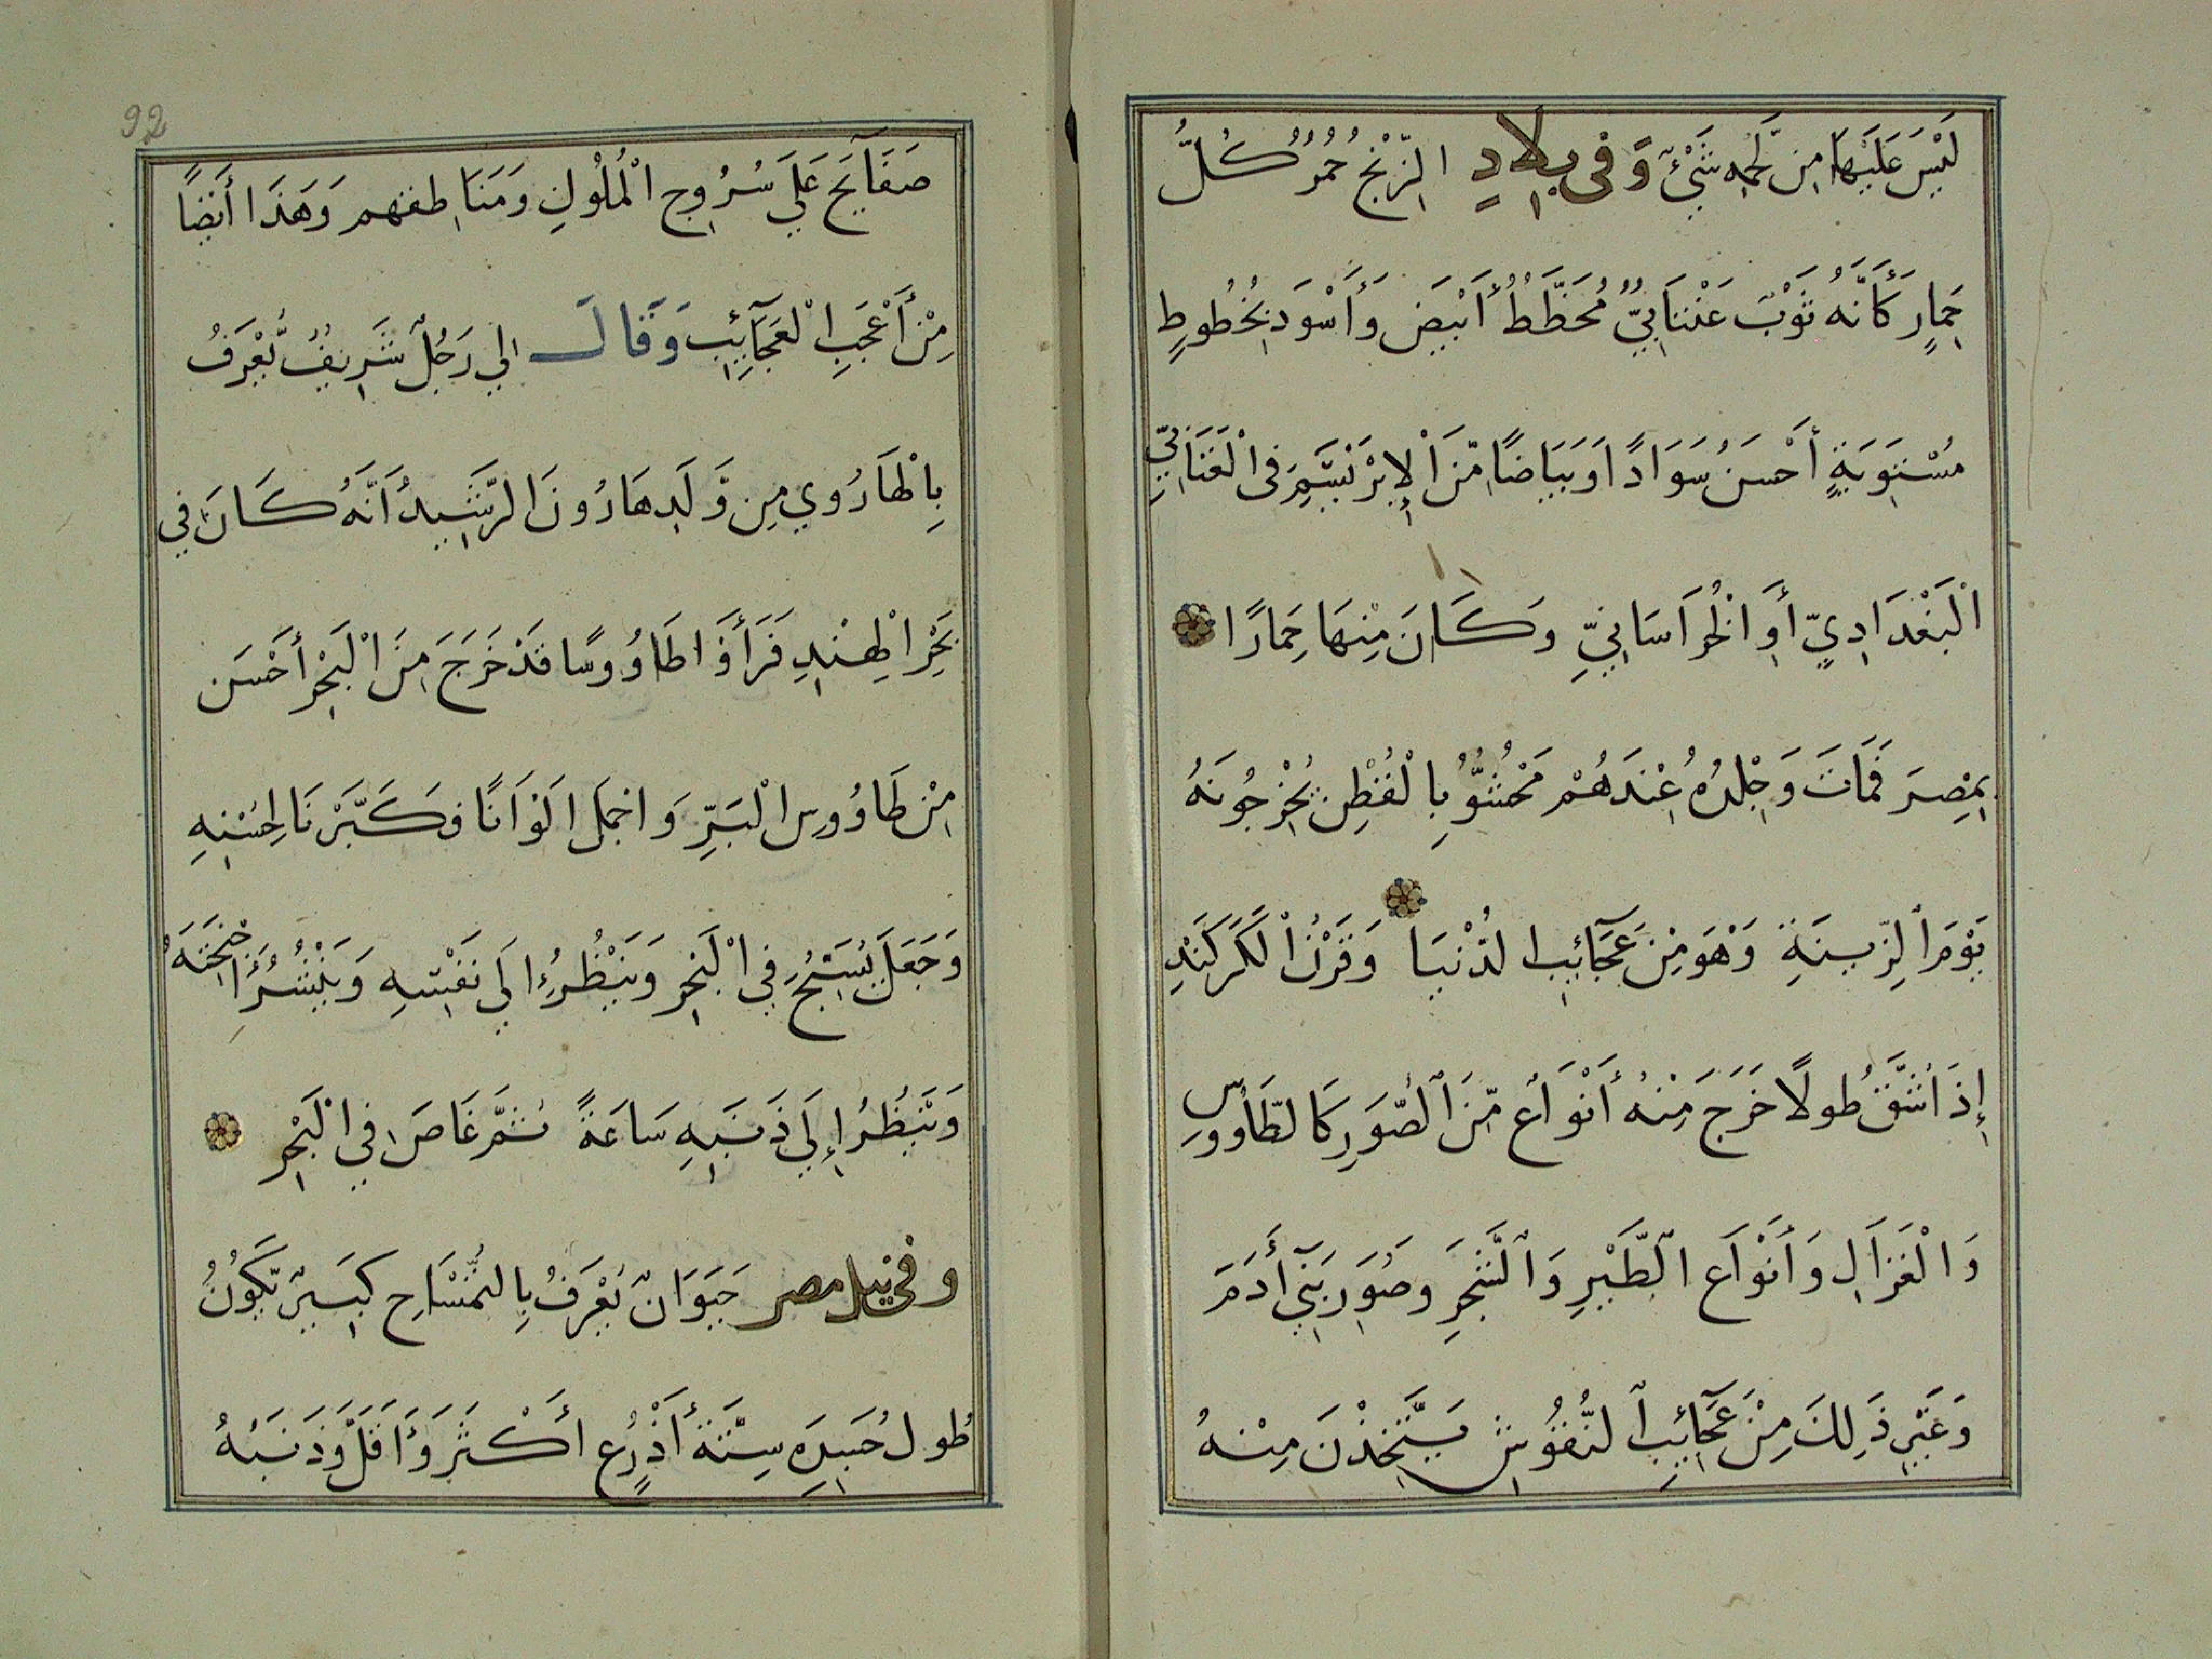 لَيْسَ عَلَيْهَا مِن لَّحْمِهِ شَيْءٌ وَفِى بِلَادِ الزَّنْجِ حُمُرٌ كُلُّ
حِمَارٍ كَأَنَّهُ ثَوْبٌ عَتَّابِيٌّ مُخَطَّطٌ أَبْيَضَ وَأَسْوَدَ بِخُطُوطٍ
مُسْتَوِيَةٍ أَحْسَنُ سَوَادًا وَبَيَاضًا مِّنَ الْإِبْرَيْسَمِ فِى الْعَتَّابِيِّ
الْبَغْدَادِيِّ أَوِ الْخُرَاسَانِيِّ وَكَانَ مِنْهَا حِمَارًا
بِمِصْرَ فَمَاتَ وَجِلْدُهُ عِنْدَهُمْ مَحْشُوٌّ بِالْقُطْنِ يُخْرِجُونَهُ
يَوْمَ الزِّينَةِ وَهْوَ مِنْ عَجَآئِبِ الدُّنْيَا وَقَرْنُ الْكَرْكَنْدِ
إِذَا شُقَّ طُولًا خَرَجَ مِنْهُ أَنْوَاعٌ مِّنَ الصُّوَرِ كَالطَّاوُوسِ
وَالْغَزَالِ وَأَنْوَاعِ الطَّيْرِ وَالشَّجَرِ وَصُوَرِ بَنِي أَدَمَ
وَغَيْرِ ذَلِكَ مِنْ عَجَآئِبِ النُّقُوشِ يَتَّخِذْنَ مِنْهُ
92
صَفَآيِحَ عَلَى سُرُوجِ الْمُلُوكِ وَمَنَاطِقهم وَهَذَا أَيْضًا
مِنْ أَعْجَبِ الْعَجَآئِبِ وَقَالَ لِي رَجُلٌ شَرِيفٌ يُّعْرَفُ
بِالْهَارُونِي مِن وَّلَدِ هَارُونَ الرَّشِيدِ أَنَّهُ كَانَ فِي
بَحْرِ الْهِنْدِ فَرَأَوَا طَاوُوسًا قَدْ خَرَجَ مِنَ الْبَحْرِ أَحْسَنَ
مِنْ طَاوُوسِ الْبَرِّ وَاجْمَلَ الْوَانًا فَكَبَّرْنَا لِحُسْنِهِ
وَجَعَلَ يَسْبَحُ فِي الْبَحْرِ وَيَنْظُرُ إِلَى نَفْسِهِ وَيَنْشُرُ أَجْنِحَتَهُ
وَيَنْظُرُ إِلَى ذَنَبِهِ سَاعَةً ثُمَّ غَاصَ فِي الْبَحْرِ
وفى نيل مصر حَيَوَانٌ يُعْرَفُ بِالتُّمْسَاحِ كَبِيرٌ يَكُونُ
طُولُ جَسَدِهِ سِتَّةُ أَذْرُعٍ أَكْثَرَ وَأَقَلَّ وَذَنَبُهُ